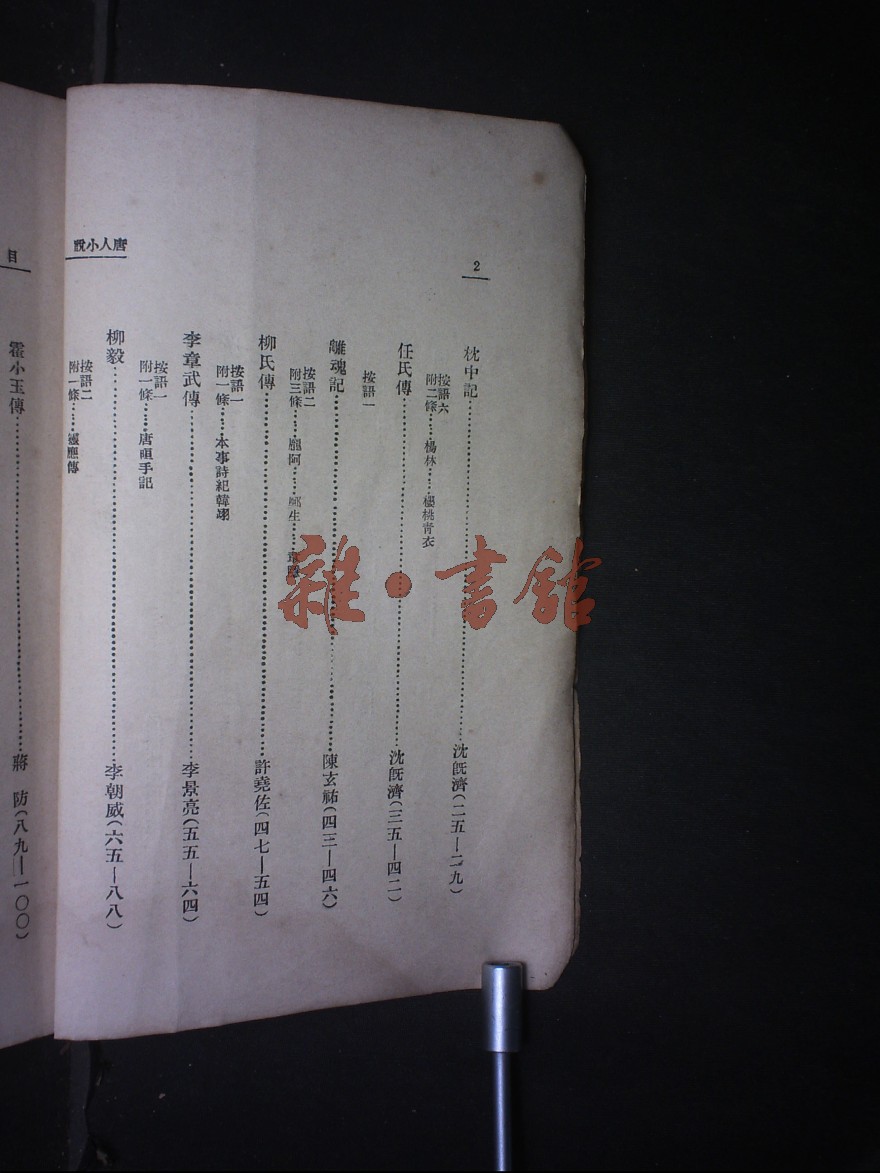 2
枕中記……沈旣濟(二五—二九)
按語六
附二條……楊林……櫻桃青衣
任氏傳……沈旣濟(三五—四二)
按語一
離魂記……陳玄祐(四三—四六)
按語二
附三條……龐阿……鄭生……韋隱
柳氏傳……許堯佐(四七—五四)
按語一
附一條……本事詩紀韓翊
李章武傳……李景亮(五五—六四)
按語一
附一條……唐晅手記
柳毅……李朝威(六五—八八)
按語二
附一條……靈應傳
唐人小說
目
霍小玉傳……蔣　防(八九—一〇〇)
雜・書館